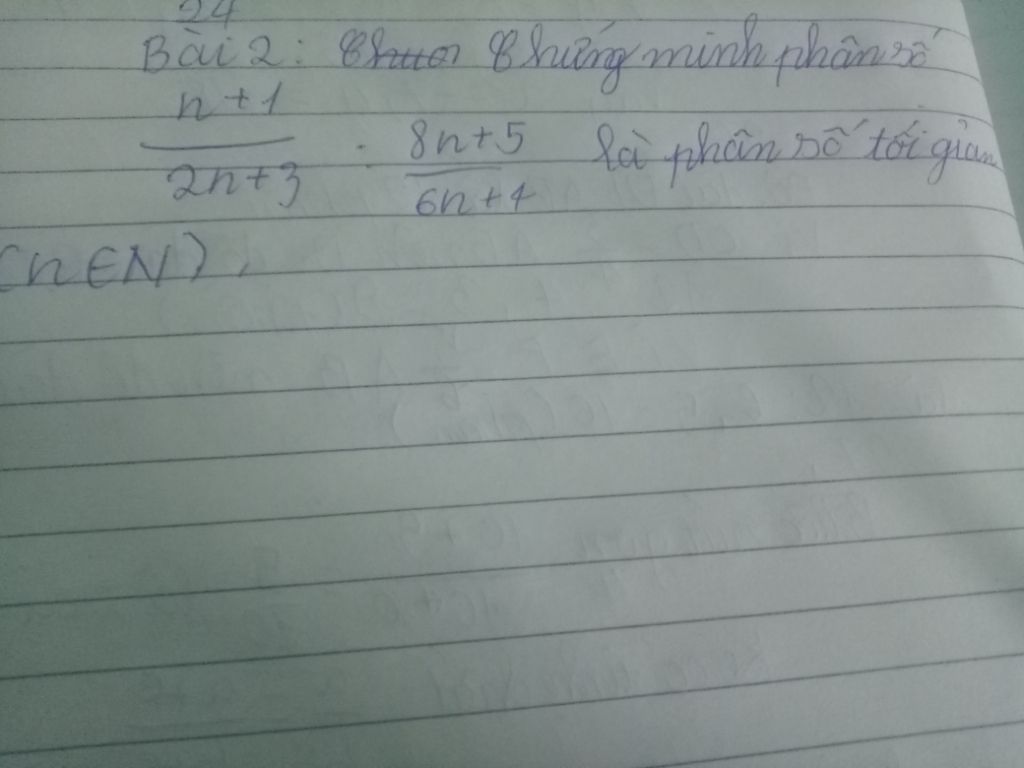 24
Bài 2: Chứng minh phân số
n+1
2n+3
; 8n+5
6n+4
là phân số tối giản
(n∈N).